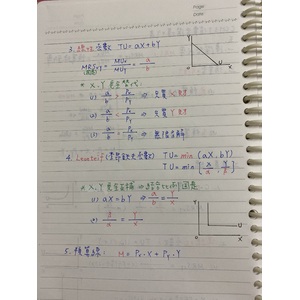 Page:
Date:
3. 線性函數 TU = aX + bY
MRSxy = MUx / MUy = a / b
(固定)
* X, Y 完全替代
(1) a/b > Px/Py ⇒ 只買 X 財
(2) a/b < Px/Py ⇒ 只買 Y 財
(3) a/b = Px/Py ⇒ 無限多解
4. Leontief TU = min (aX, bY)
TU = min [X/a, Y/b]
* X, Y 完全互補
(1) aX = bY ⇒ a/b = Y/X
(2) = Y/X
5. 預算線: M = Px · X + Py · Y